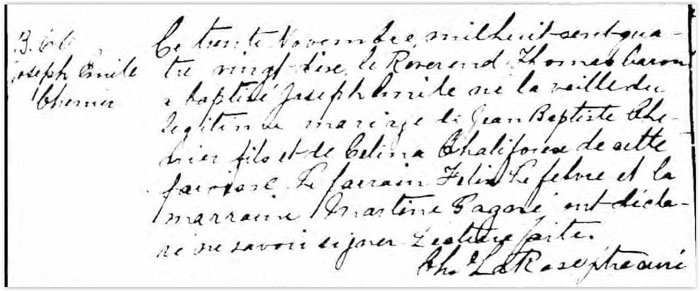 B.66
Joseph Emile
Chenier
Ce trente Novembre, mil huit cent qua-
tre vingt dix, le Reverend Thomas Caron
a baptisé Joseph Emile né la veille du
légitime mariage de Jean Baptiste Che-
nier fils et de Celina Chalifoux de cette
paroisse. Le parrain Felix Lefebvre et la
marraine Martine Pagé ont décla-
ré ne savoir signer. Lecture faite.
Chs LaRose ptre curé